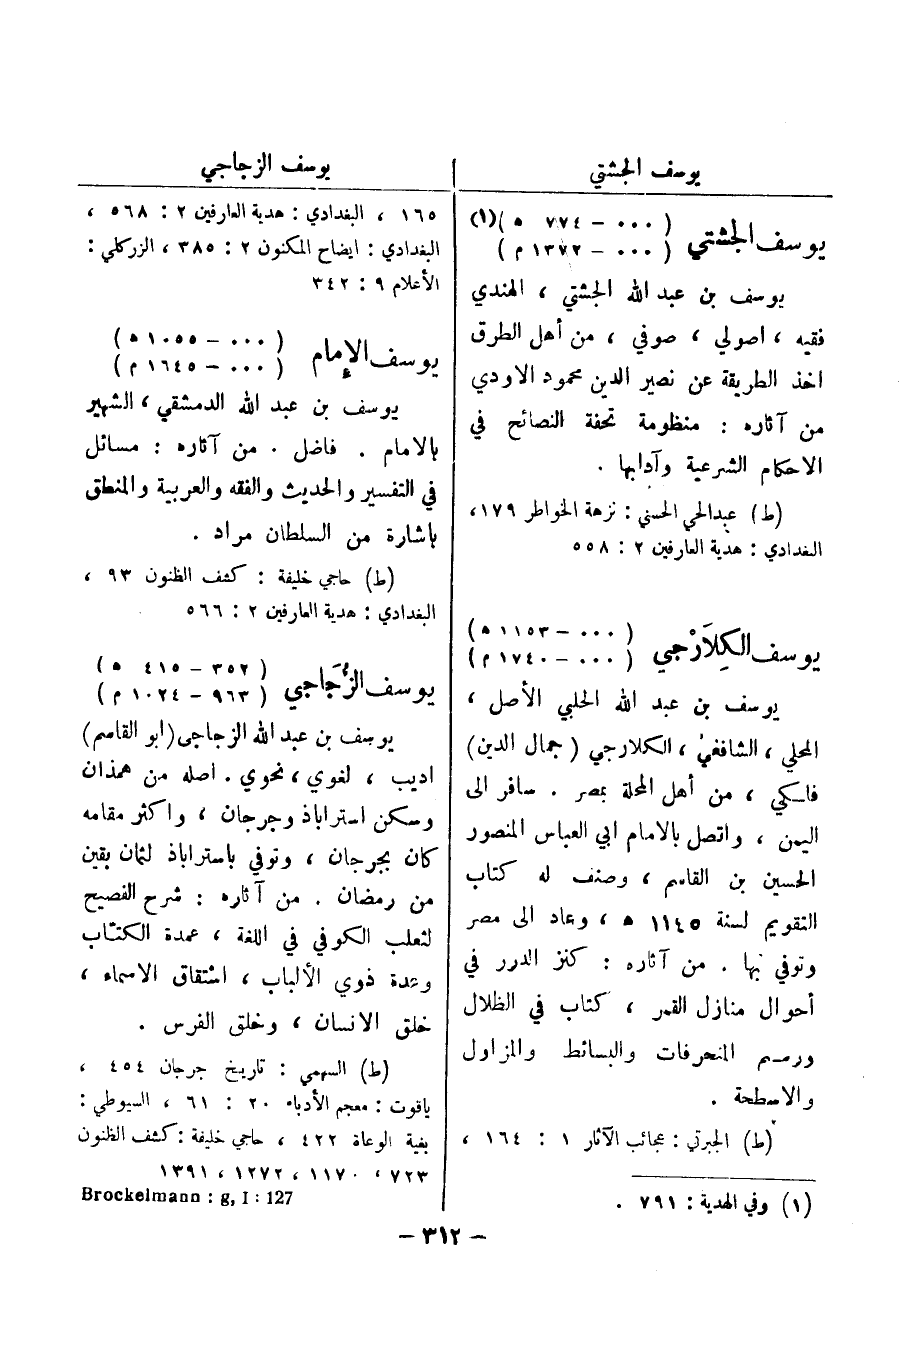 يوسف الجشتي
يوسف الجشتي (٠٠٠ – ٧٧٤ ه) (١)
(٠٠٠ – ١٣٧٢ م)
يوسف بن عبد الله الجشتي ، الهندي
فقيه ، اصولي ، صوفي ، من أهل الطرق
اخذ الطريقة عن نصير الدين محمود الاودي
من آثاره : منظومة تحفة النصائح في
الاحكام الشرعية وآدابها .
(ط) عبدالحي الحسني : نزهة الخواطر ١٧٩،
البغدادي : هدية العارفين ٢ : ٥٥٨
يوسف الكِلَارْجي (٠٠٠ – ١١٥٣ ه)
(٠٠٠ – ١٧٤٠ م)
يوسف بن عبد الله الحلبي الأصل ،
المحلي ، الشافعي ، الكلارجي ( جمال الدين)
فلكي ، من أهل المحلة بمصر . سافر الى
اليمن ، واتصل بالامام ابي العباس المنصور
الحسين بن القاسم ، وصنف له كتاب
التقويم لسنة ١١٤٥ ه ، وعاد الى مصر
وتوفي بها . من آثاره : كنز الدرر في
أحوال منازل القمر ، كتاب في الظلال
ورسم المنحرفات والبسائط والمزاول
والاسطحة .
(ط) الجبرتي : عجائب الآثار ١ : ١٦٤ ،
(١) وفي الهدية : ٧٩١ .
يوسف الزجاجي
١٦٥ ، البغدادي : هدية العارفين ٢ : ٥٦٨ ،
البغدادي : ايضاح المكنون ٢ : ٣٨٥ ، الزركلي :
الأعلام ٩ : ٣٤٢
يوسف الإمام (٠٠٠ – ١٠٥٥ ه)
(٠٠٠ – ١٦٤٥ م)
يوسف بن عبد الله الدمشقي ، الشهير
بالامام . فاضل . من آثاره : مسائل
في التفسير والحديث والفقه والعربية والمنطق
باشارة من السلطان مراد .
(ط) حاجي خليفة : كشف الظنون ٩٣ ،
البغدادي : هدية العارفين ٢ : ٥٦٦
يوسف الزُّجَاجي (٣٥٢ – ٤١٥ ه)
(٩٦٣ – ١٠٢٤ م)
يوسف بن عبد الله الزجاجي (ابو القاسم)
اديب ، لغوي ، نحوي . اصله من همذان
وسكن استراباذ وجرجان ، واكثر مقامه
كان بجرجان ، وتوفي باستراباذ لثمان بقين
من رمضان . من آثاره : شرح الفصيح
لثعلب الكوفي في اللغة ، عمدة الكتاب
وعدة ذوي الألباب ، اشتقاق الاسماء ،
خلق الانسان ، وخلق الفرس .
(ط) السهمي : تاريخ جرجان ٤٥٤ ،
ياقوت : معجم الأدباء ٢٠ : ٦١ ، السيوطي :
بغية الوعاة ٤٢٢ ، حاجي خليفة : كشف الظنون
٧٢٣ ، ١١٧٠ ، ١٢٧٢ ، ١٣٩١
Brockelmann : g, I : 127
– ٣١٢ –